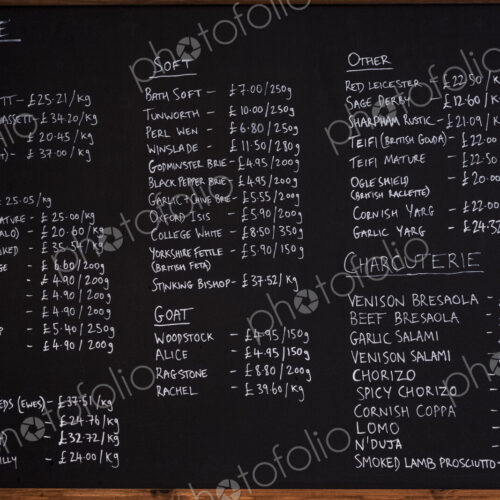 E
TT - £25.21/kg
ASSETT - £34.20/kg
- £20.45/kg
) - £37.00/kg
£25.05/kg
ATURE - £25.00/kg
ALO) - £20.60/kg
OKED - £35.54/kg
GE - £6.60/200g
- £4.90/200g
- £4.90/200g
- £4.90/200g
P - £5.40/250g
- £4.90/200g
EDS (EWES) - £37.51/kg
£24.76/kg
) - £32.72/kg
LLY - £24.00/kg
SOFT
BATH SOFT - £7.00/250g
TUNWORTH - £10.00/250g
PERL WEN - £6.80/250g
WINSLADE - £11.50/280g
GODMINSTER BRIE - £4.95/200g
BLACK PEPPER BRIE - £4.95/200g
GARLIC + CHIVE BRIE - £5.55/200g
OXFORD ISIS - £5.90/200g
COLLEGE WHITE - £8.50/350g
YORKSHIRE FETTLE - £5.90/150g
(BRITISH FETA)
STINKING BISHOP - £37.52/kg
GOAT
WOODSTOCK - £4.95/150g
ALICE - £4.95/150g
RAGSTONE - £8.80/200g
RACHEL - £39.60/kg
OTHER
RED LEICESTER - £22.50/k
SAGE DERBY - £12.60/k
SHARPHAM RUSTIC - £21.09/k
TEIFI (BRITISH GOUDA) - £22.00
TEIFI MATURE - £22.50
OGLE SHIELD - £20.00
(BRITISH RACLETTE)
CORNISH YARG - £22.00
GARLIC YARG - £24.32
CHARCUTERIE
VENISON BRESAOLA -
BEEF BRESAOLA -
GARLIC SALAMI -
VENISON SALAMI -
CHORIZO -
SPICY CHORIZO -
CORNISH COPPA -
LOMO -
N'DUJA -
SMOKED LAMB PROSCIUTTO -
photofolio
photofolio
photofolio
photofolio
photofolio